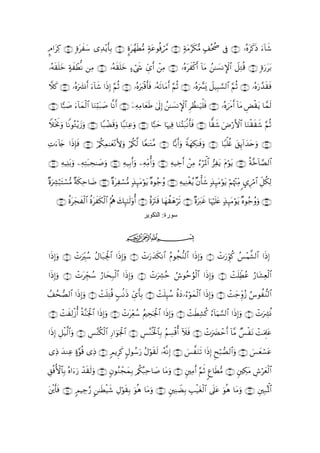 شَآءَ ذَكَرَهُۥ ۝١٢ فِى صُحُفٍ مُّكَرَّمَةٍ ۝١٣ مَّرْفُوعَةٍ مُّطَهَّرَةٍۭ ۝١٤ بِأَيْدِى سَفَرَةٍ ۝١٥ كِرَامٍۭ
بَرَرَةٍ ۝١٦ قُتِلَ ٱلْإِنسَٰنُ مَآ أَكْفَرَهُۥ ۝١٧ مِنْ أَىِّ شَىْءٍ خَلَقَهُۥ ۝١٨ مِن نُّطْفَةٍ خَلَقَهُۥ
فَقَدَّرَهُۥ ۝١٩ ثُمَّ ٱلسَّبِيلَ يَسَّرَهُۥ ۝٢٠ ثُمَّ أَمَاتَهُۥ فَأَقْبَرَهُۥ ۝٢١ ثُمَّ إِذَا شَآءَ أَنشَرَهُۥ ۝٢٢ كَلَّا
لَمَّا يَقْضِ مَآ أَمَرَهُۥ ۝٢٣ فَلْيَنظُرِ ٱلْإِنسَٰنُ إِلَىٰ طَعَامِهِۦٓ ۝٢٤ أَنَّا صَبَبْنَا ٱلْمَآءَ صَبًّا
۝٢٥ ثُمَّ شَقَقْنَا ٱلْأَرْضَ شَقًّا ۝٢٦ فَأَنۢبَتْنَا فِيهَا حَبًّا ۝٢٧ وَعِنَبًا وَقَضْبًا ۝٢٨ وَزَيْتُونًا وَنَخْلًا
۝٢٩ وَحَدَآئِقَ غُلْبًا ۝٣٠ وَفَٰكِهَةً وَأَبًّا ۝٣١ مَّتَٰعًا لَّكُمْ وَلِأَنْعَٰمِكُمْ ۝٣٢ فَإِذَا جَآءَتِ
ٱلصَّآخَّةُ ۝٣٣ يَوْمَ يَفِرُّ ٱلْمَرْءُ مِنْ أَخِيهِ ۝٣٤ وَأُمِّهِۦ وَأَبِيهِ ۝٣٥ وَصَٰحِبَتِهِۦ وَبَنِيهِ ۝٣٦
لِكُلِّ ٱمْرِئٍ مِّنْهُمْ يَوْمَئِذٍ شَأْنٌ يُغْنِيهِ ۝٣٧ وُجُوهٌ يَوْمَئِذٍ مُّسْفِرَةٌ ۝٣٨ ضَاحِكَةٌ مُّسْتَبْشِرَةٌ ۝٣٩
وَوُجُوهٌ يَوْمَئِذٍ عَلَيْهَا غَبَرَةٌ ۝٤٠ تَرْهَقُهَا قَتَرَةٌ ۝٤١ أُو۟لَٰٓئِكَ هُمُ ٱلْكَفَرَةُ ٱلْفَجَرَةُ ۝٤٢
سورة: التكوير
بِسْمِ ٱللَّهِ ٱلرَّحْمَٰنِ ٱلرَّحِيمِ
إِذَا ٱلشَّمْسُ كُوِّرَتْ ۝١ وَإِذَا ٱلنُّجُومُ ٱنكَدَرَتْ ۝٢ وَإِذَا ٱلْجِبَالُ سُيِّرَتْ ۝٣ وَإِذَا
ٱلْعِشَارُ عُطِّلَتْ ۝٤ وَإِذَا ٱلْوُحُوشُ حُشِرَتْ ۝٥ وَإِذَا ٱلْبِحَارُ سُجِّرَتْ ۝٦ وَإِذَا
ٱلنُّفُوسُ زُوِّجَتْ ۝٧ وَإِذَا ٱلْمَوْءُۥدَةُ سُئِلَتْ ۝٨ بِأَىِّ ذَنۢبٍ قُتِلَتْ ۝٩ وَإِذَا ٱلصُّحُفُ
نُشِرَتْ ۝١٠ وَإِذَا ٱلسَّمَآءُ كُشِطَتْ ۝١١ وَإِذَا ٱلْجَحِيمُ سُعِّرَتْ ۝١٢ وَإِذَا ٱلْجَنَّةُ أُزْلِفَتْ ۝١٣
عَلِمَتْ نَفْسٌ مَّآ أَحْضَرَتْ ۝١٤ فَلَآ أُقْسِمُ بِٱلْخُنَّسِ ۝١٥ ٱلْجَوَارِ ٱلْكُنَّسِ ۝١٦ وَٱلَّيْلِ إِذَا
عَسْعَسَ ۝١٧ وَٱلصُّبْحِ إِذَا تَنَفَّسَ ۝١٨ إِنَّهُۥ لَقَوْلُ رَسُولٍ كَرِيمٍ ۝١٩ ذِى قُوَّةٍ عِندَ ذِى
ٱلْعَرْشِ مَكِينٍ ۝٢٠ مُّطَاعٍ ثَمَّ أَمِينٍ ۝٢١ وَمَا صَاحِبُكُم بِمَجْنُونٍ ۝٢٢ وَلَقَدْ رَءَاهُ بِٱلْأُفُقِ
ٱلْمُبِينِ ۝٢٣ وَمَا هُوَ عَلَى ٱلْغَيْبِ بِضَنِينٍ ۝٢٤ وَمَا هُوَ بِقَوْلِ شَيْطَٰنٍ رَّجِيمٍ ۝٢٥ فَأَيْنَ